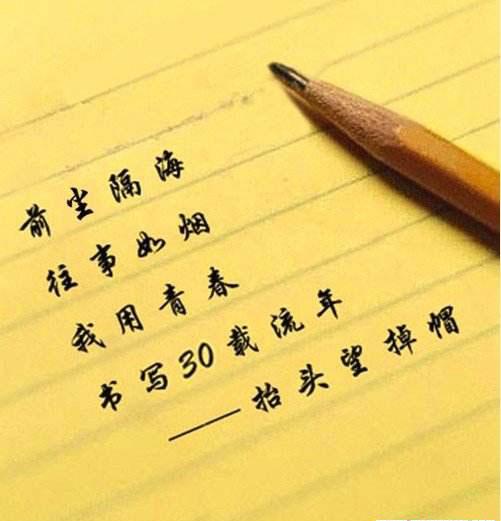 前尘隔海
往事如烟
我用青春
书写30载流年
——抬头望掉帽